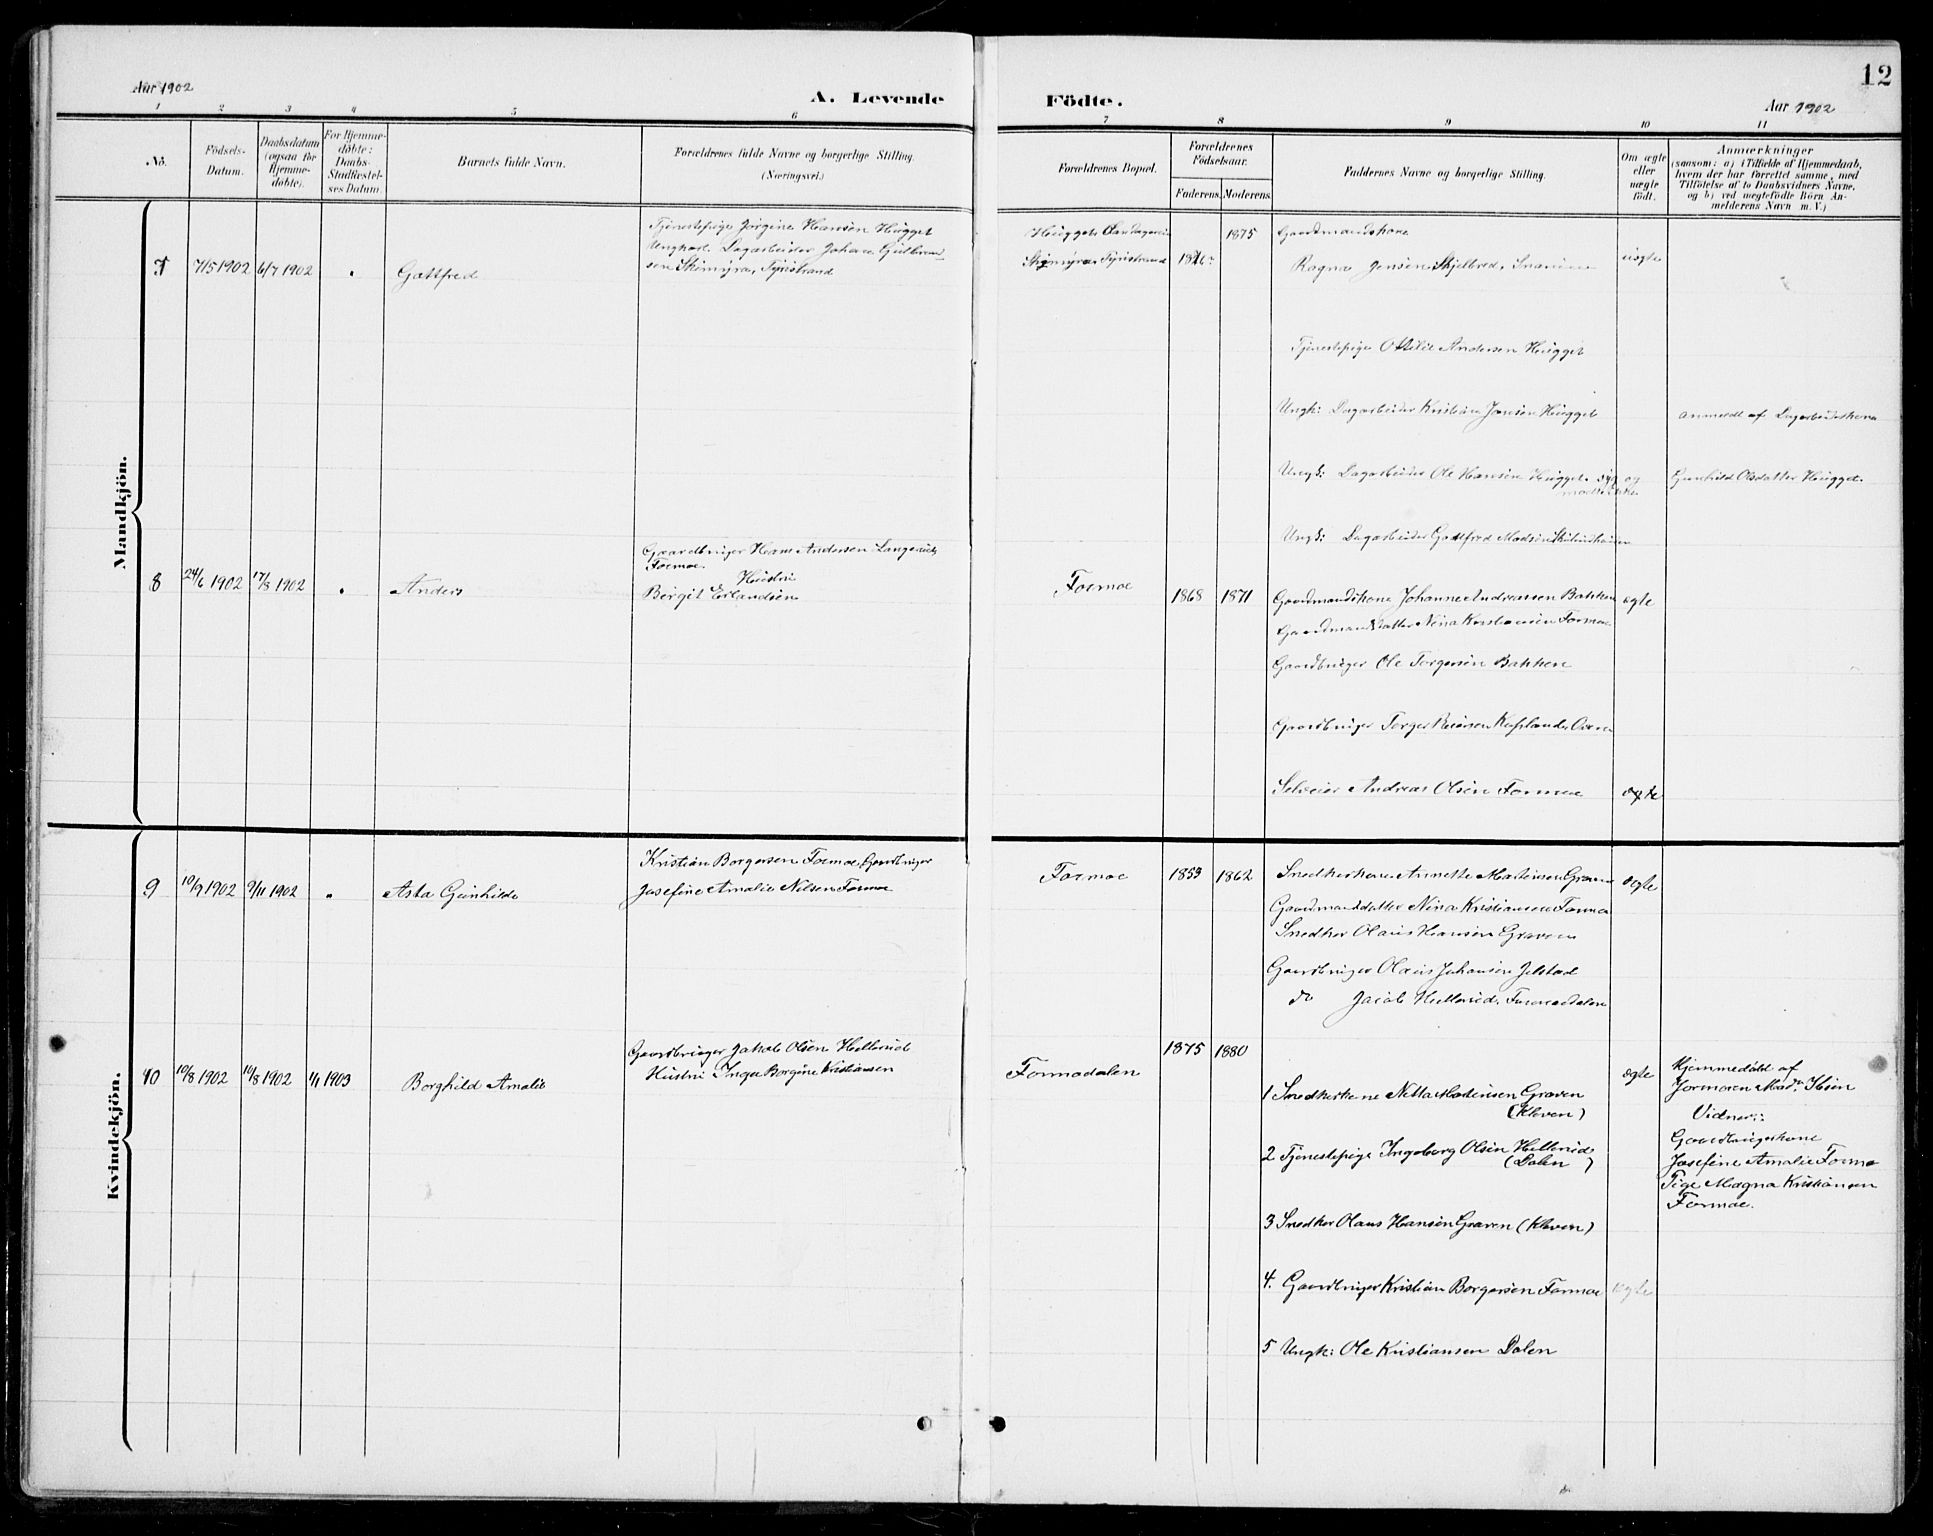 12
Aar 1902
A. Levende Födte.
Aar 1902
1 2 3 4 5 6 7 8 9 10 11
No.
Födsels-Datum.
Daabsdatum (ogsaa for Hjemme-döbte).
For Hjemme-döbte: Daabs-Stadfæstel-ses Datum.
Barnets fulde Navn.
Forældrenes fulde Navne og borgerlige Stilling.
(Næringsvei.)
Forældrenes Bopæl.
Forældrenes Födselsaar.
Faderens. Moderens.
Faddernes Navne og borgerlige Stilling.
Om ægte eller uægte födt.
Anmærkninger
(saasom: a) i Tilfælde af Hjemmedaab,
hvem der har forrettet samme, med
Tilföielse af to Daabsvidners Navne,
og b) ved uægtefödte Börn An-
melderens Navn m. V.)
Mandkjön.
7 7/5 1902 6/7 1902 " Gottfred
Tjenestepige Jørgine Hansen Hugget
Ungkarl Dagarbeider Johan Gulbrand
sen Skimyra, Tyristrand
Hugget
Skimyra, Tyristrand
1875
Gaardmandskone
Ragna Jensen Skjelbred,
uægte
Tjenestepige Otilie Andersen Hugget
Ungk: Dagarbeider Kristian Jansen Hugget
anmeldt af Dagarbeiderkone
Ungk: Dagarbeider Ole Hansen Hugget. syg og mødte ikke.
Gunhild Olsdatter Hugget.
Ungk: Dagarbeider Gottfred Madsen
8 24/6 1902 17/8 1902 " Anders
Gaardbruger Hans Andersen Langerud,
Formoe.
Hustru
Birgit Erlandsen
Formoe 1868 1871
Gaardmandskone Johanne Andreassen Bakken ægte
Gaardmandsdatter Nina Kristiansen Formoe
Gaardbruger Ole Torgersen Bakken
Gaardbruger Torger
Selveier Andreas Olsen Formoe ægte
Kvindekjön.
9 10/9 1902 9/11 1902 " Asta Gunhilde
Kristian Borgersen Formoe, Gaardbruger
Josefine Amalie Nilsen Formoe
Formoe 1853 1862
Snedkerkone Annette Martinsen Graven ægte
Gaardmandsdatter Nina Kristiansen Formoe
Snedker Olaus Hansen Graven
Gaardbruger Olaus Johansen Jelstad
do Jacob Hellerud, Formoedalen
10 10/8 1902 10/8 1902 1/1 1903 Borghild Amalie
Gaardbruger Jakob Olsen Hellerud
Hustru Inga Borgine Kristiansen
Formodalen 1875 1880
1 Snedkerkone Netta Martinsen Graven
(Kleven)
ægte
2 Tjenestepige Ingeborg Olsen Hellerud
(Dalen)
3 Snedker Olaus Hansen Graven (Kleven)
4. Gaardbruger Kristian Borgersen Formoe ægte
5 Ungk: Ole Kristiansen Dalen
Hjemmedøbt af
Jormoren Mad. Ibsen
Vidner:
Gaardbrugerkone
Josefine Amalie Formo
Pige Magna Kristiansen
Formoe.